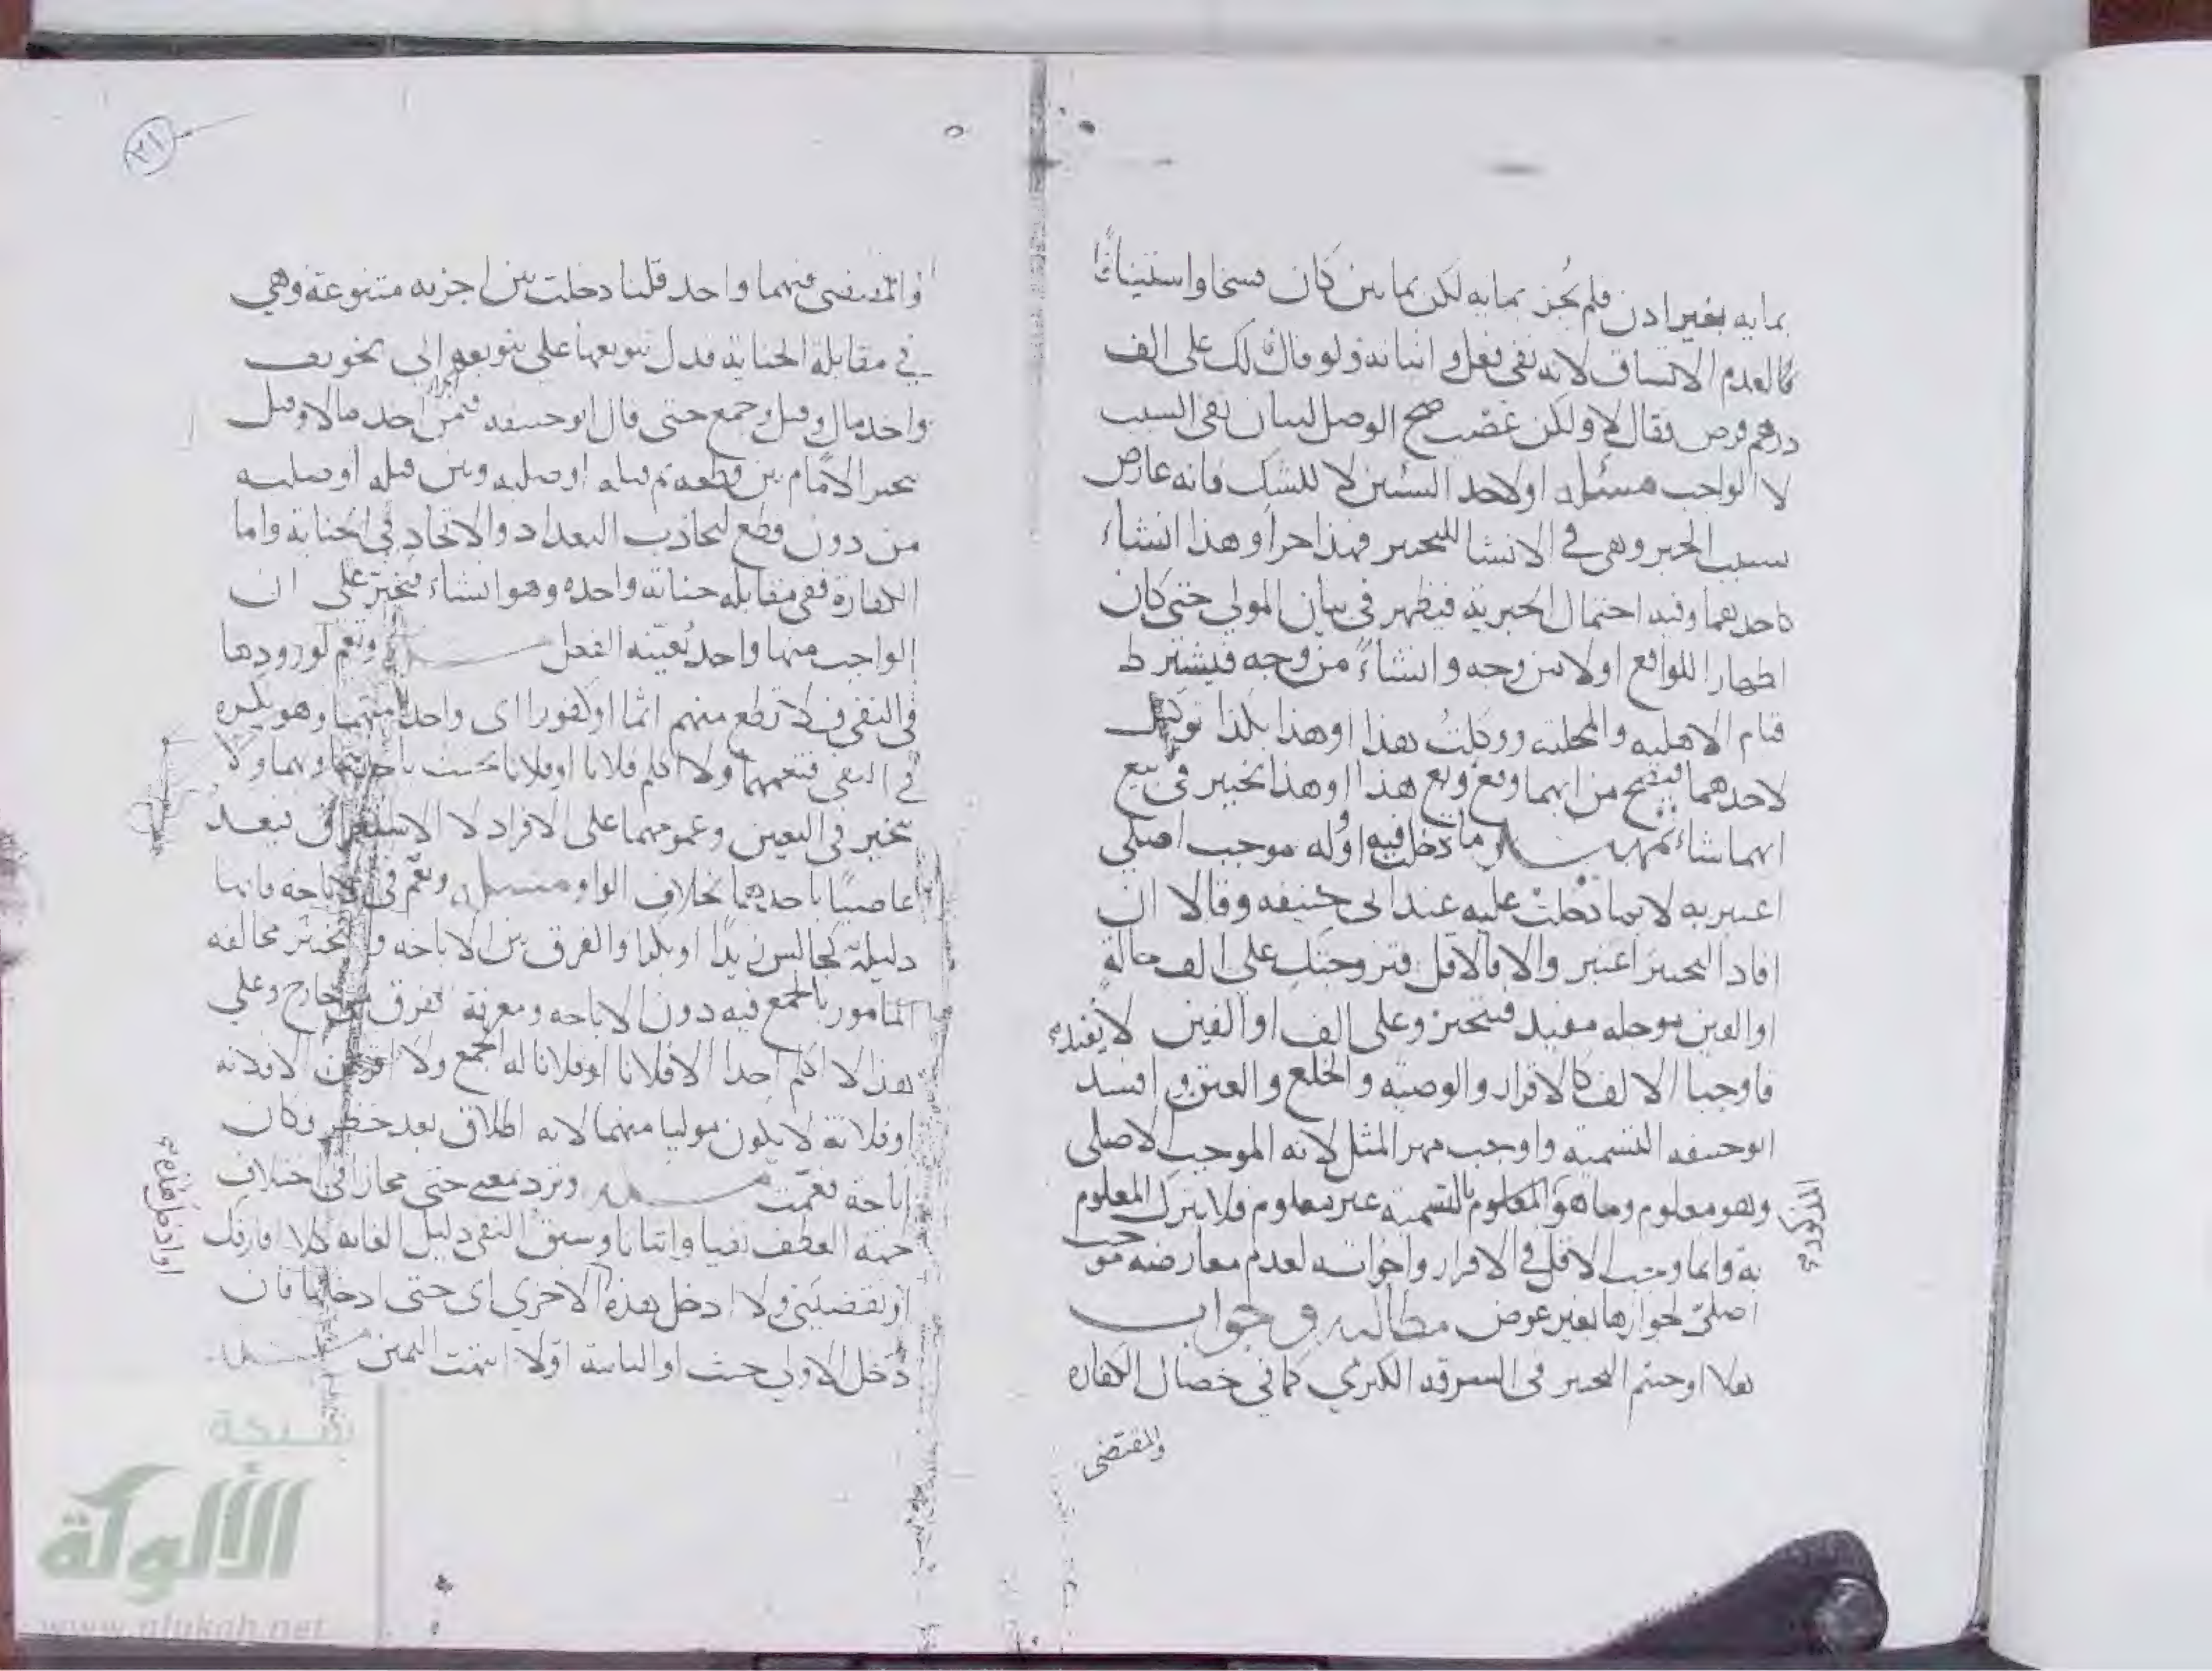 بمايه بغير اذن فلم يجز بمايه لكن بمايتين كان فسخا واستينافا
كالعدم الاتساق لانه نفى فعل واثباته ولو قال لك على الف
درهم قرض فقال لا ولكن غصب صح الوصل لبيان نفى السبب
لا الواجب مسئله او لاحد الشيئين لا للشك فانه عارض
بسبب الخبر وهى في الانشا للتخيير فهذا حر او هذا انشاء
لاحدهما وفيه احتمال الخبرية فيظهر في بيان المولى حتى كان
اظهارا للواقع اولا من وجه وانشاءً من وجه فيشترط
قيام الاهليه والمحليه ووكلت هذا او هذا بكذا توكيل
لاحدهما فيصح من ايهما وقع وبع هذا او هذا تخيير في بيع
ايهما شاء وما دخلت فيه او وله موجب اصلي
اعتبر به لا بما دخلت عليه عند ابى حنيفه وقالا ان
افاد التخيير اعتبر والا فالاقل فتزوجتك على الف حالة
او الفين موجله مفيد فيتخير وعلى الف او الفين لا يفيد
فاوجبا الالف كالاقرار والوصيه والخلع والعتق وافسد
ابو حنيفه التسمية واوجب مهر المثل لانه الموجب الاصلى
وهو معلوم وما هو المعلوم بالتسميه غير معلوم فلا يترك المعلوم
به وانما وجب الاقل في الاقرار واخواته لعدم معارضه موجب
اصلىّ لجوازها بغير عوض مطالبه وجواب
هلا اوجبتم التخيير في السرقه الكبرى كما في خصال الكفاره
المذكوره
والمقتضى
٢١
والمقتضى فيهما واحد قلنا دخلت بين اجزيه متنوعة وهي
في مقابلة الجناية فدل تنويعها على تنويعها الى تخويف
واخذ مال وقتل وجمع حتى قال ابو حنيفه فيمن اخذ مالا وقتل
يخير الامام بين قطعه ثم قتله او صلبه وبين قتله او صلبه
من دون قطع لتجاذب التعداد والاتحاد في الجناية واما
الكفارة ففي مقابله جناية واحده وهو انشاء فيخير على ان
الواجب منها واحد يُعيّنه الفعل مسئله وتعم لورودها
في النفى ف لا تطع منهم اثما او كفورا اى واحدا منهما وهو نكره
في النفى فتعمهما ولا اكلم فلانا او فلانا يحنث باحدهما وبهما ولا
تخير في التعيين وعمومهما على الافراد لا الاستغراق فيعد
عاصيًا باحدهما بخلاف الواو مسئله وتعم في الاباحه فانها
دليلة كجالس زيدًا او بكرا والفرق بين الاباحه والتخيير مخالفه
المأمور بالجمع فيه دون الاباحه ومعرفة تفرق من خارج وعلى
هذا لا اكلم احدا الا فلانا او فلانا له الجمع ولا اقربكن الا فلانه
او فلانة لا يكون موليا منهما لانه اطلاق بعد حظر وكان
اباحة فعمت مسئله وترد بمعنى حتى مجازا في اختلاف
جهة العطف نفيا واثباتا وسبق النفى دليل الغايه كلا افارقك
او تقضينى ولا ادخل هذه او الاخرى اى حتى ادخلها فان
دخل الاولى حنث او الثانية اولا انتهت اليمين مسئله
شبكة
الألوكة
www.alukah.net